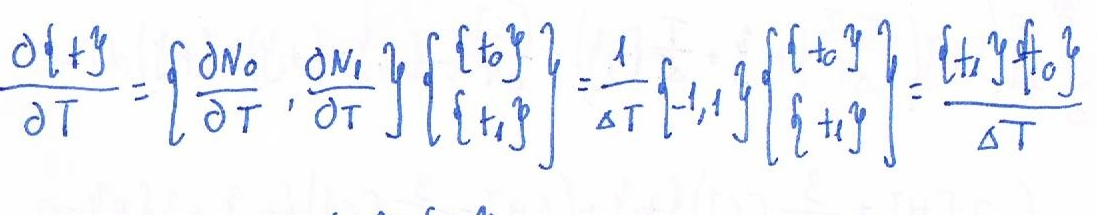 ∂{t}/∂T = {∂N₀/∂T, ∂N₁/∂T} {{t₀} {t₁}} = 1/ΔT {-1,1} {{t₀} {t₁}} = {t₁}-{t₀}/ΔT